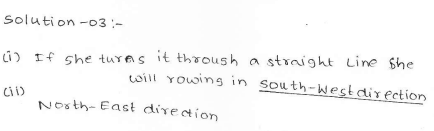 Solution-03:-
(i) If she turns it through a straight Line She
will rowing in South-West direction
(ii)
North-East direction